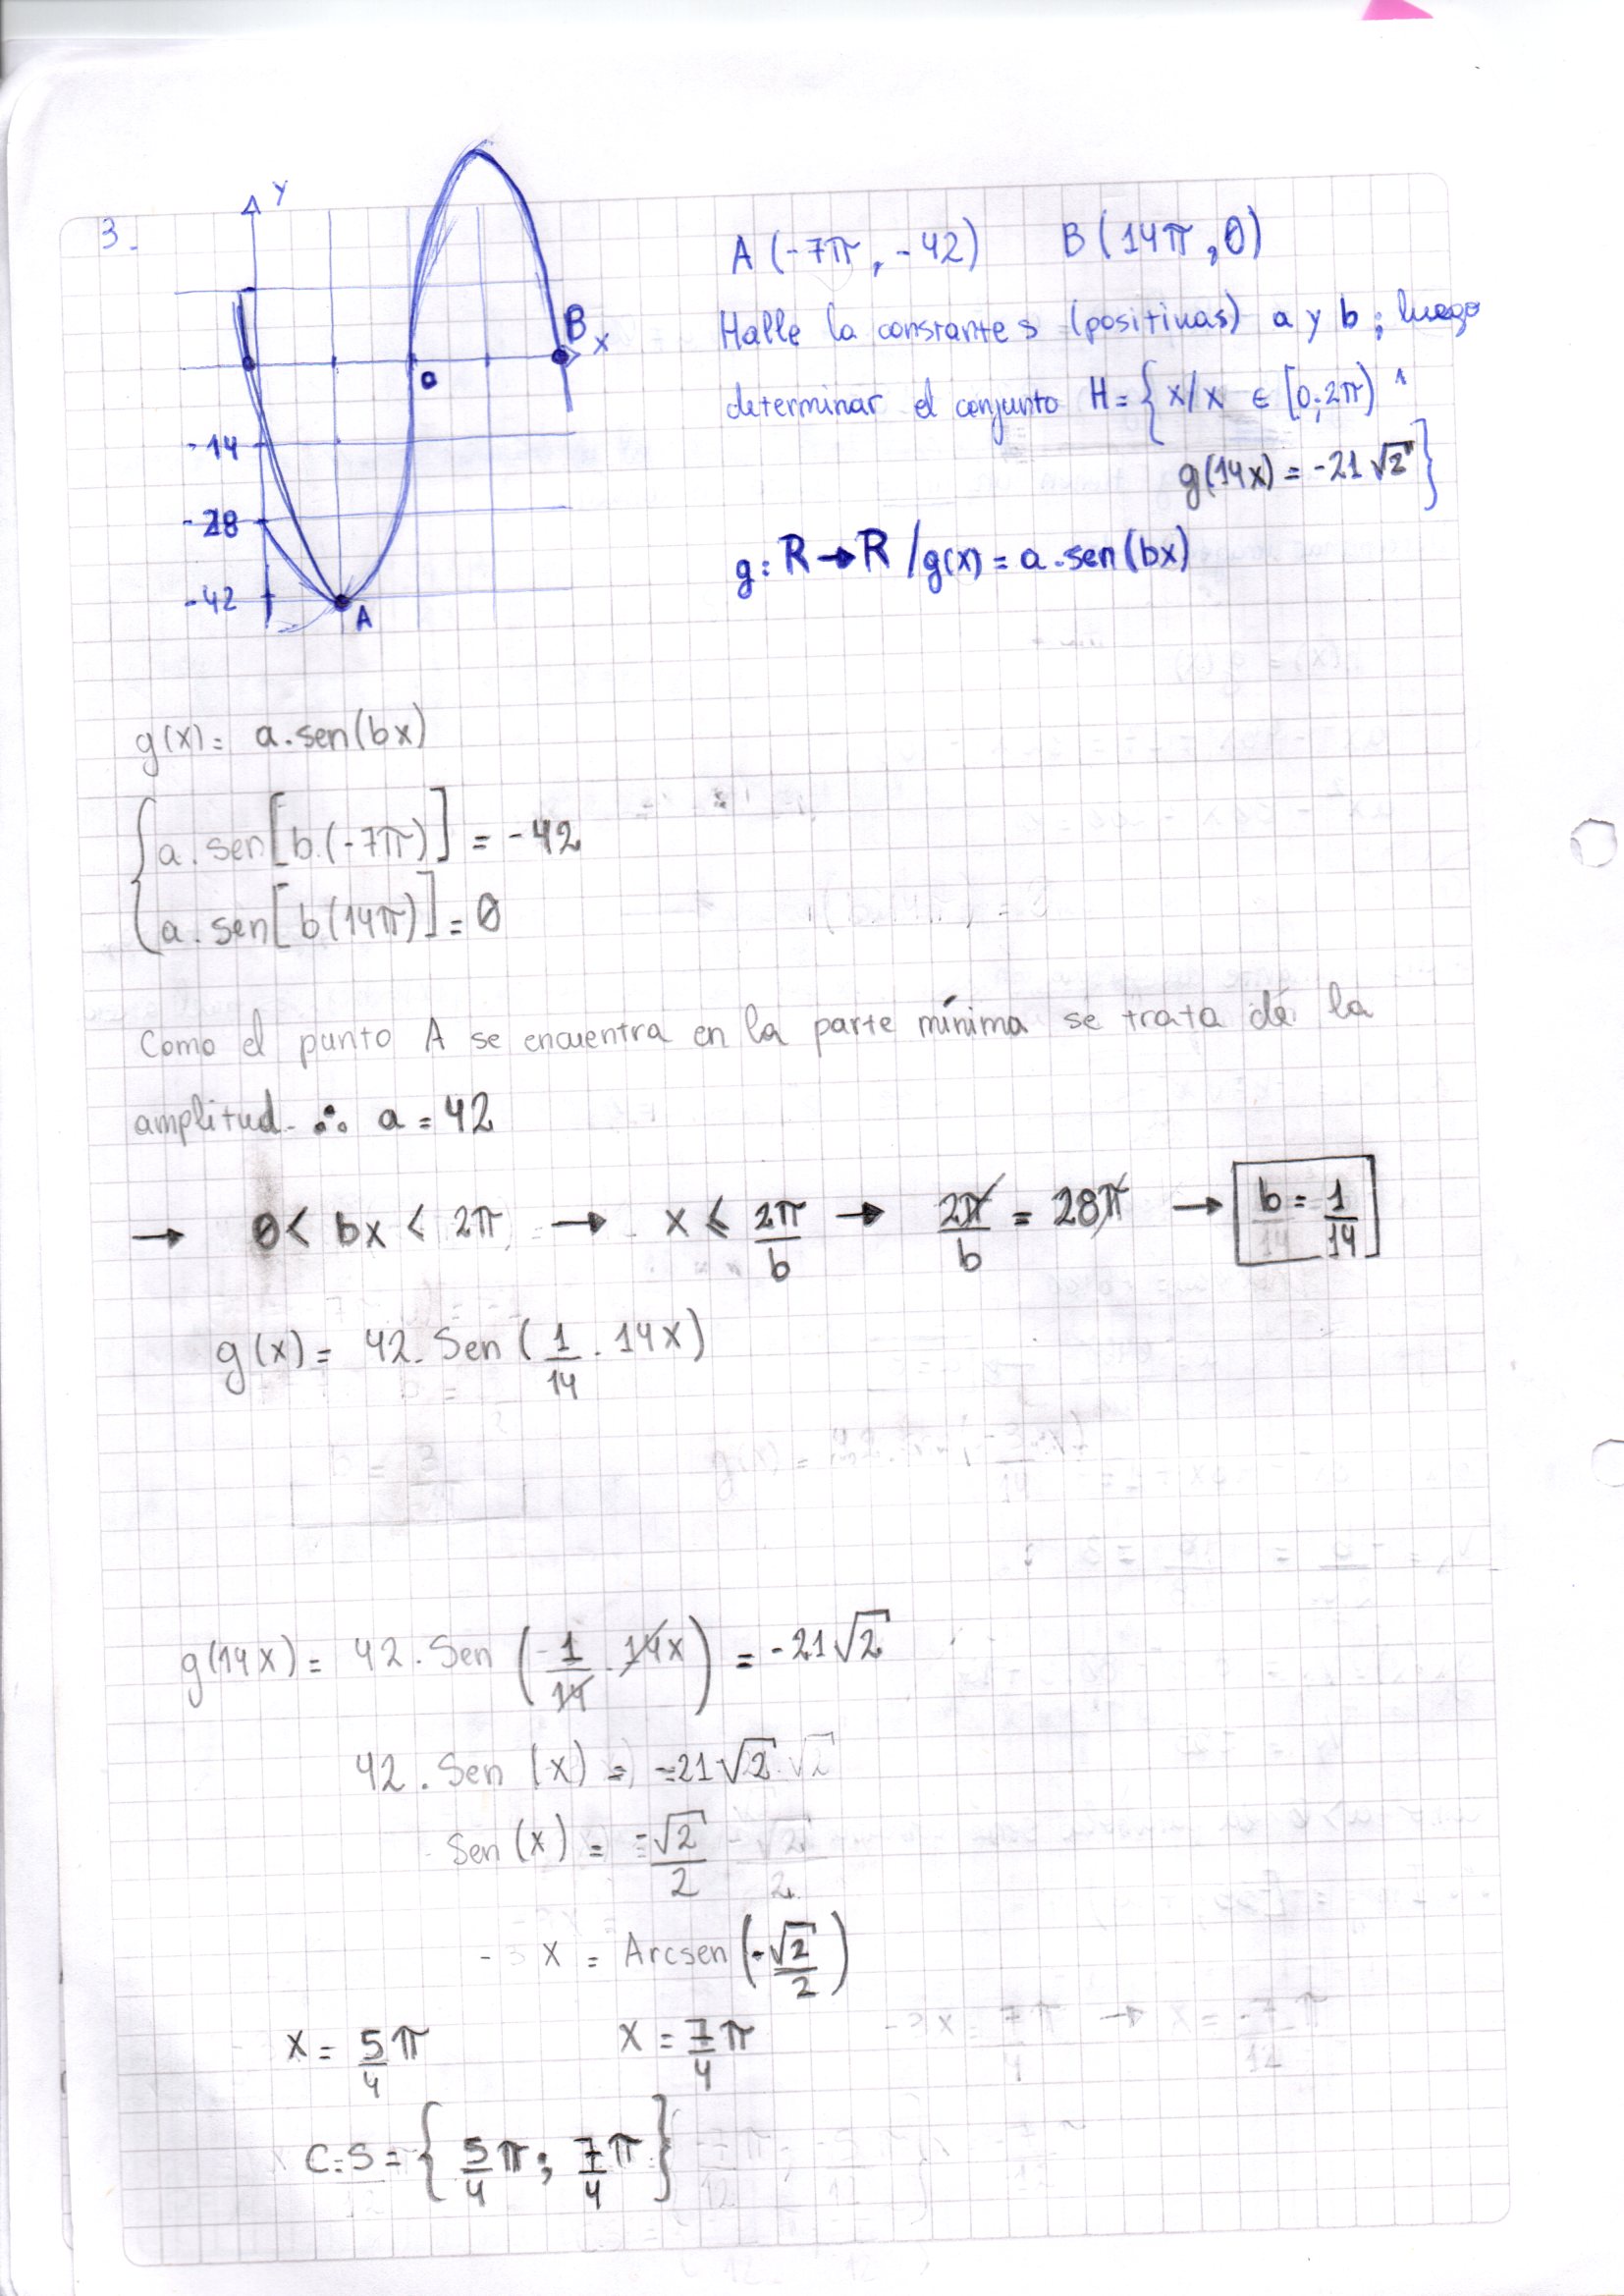 3.
Y
A (-7π, -42) B (14π, 0)
B x
Halle la constantes (positivas) a y b; luego
determinar el conjunto H = { x/x ∈ [0; 2π) ^
-14
g(14x) = -21√2 }
-28
g: R → R / g(x) = a.sen(bx)
-42
A
g(x) = a.sen(bx)
{ a.sen[b.(-7π)] = -42
a.sen[b(14π)] = 0
Como el punto A se encuentra en la parte mínima se trata de la
amplitud. ∴ a = 42
→ 0 < bx < 2π → x ≤ 2π/b → 2π/b = 28π → b = 1/14
g(x) = 42.Sen(1/14 . 14x)
g(14x) = 42.Sen(1/14 . 14x) = -21√2
42.Sen(x) = -21√2
Sen(x) = -√2/2
x = Arcsen(-√2/2)
x = 5/4 π x = 7/4 π
C.S = { 5/4 π; 7/4 π }